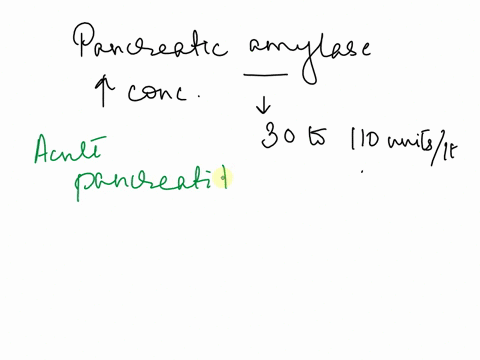 Pancreatic amylase
↑ conc. ↓
30 to 110 units/lt
Acute
pancreatit